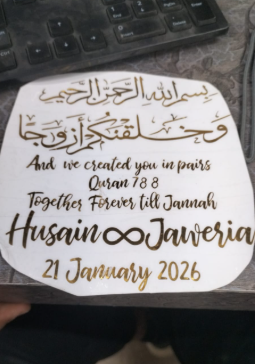 بسم الله الرحمن الرحيم
وخلقنكم أزوجا
And we created you in pairs
Quran 78 8
Together Forever till Jannah
Husain ∞ Jaweria
21 January 2026